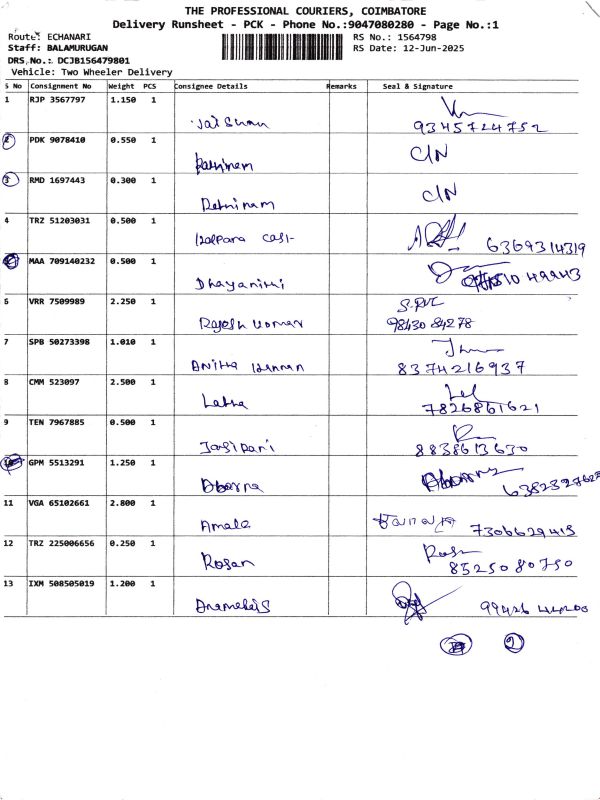 THE PROFESSIONAL COURIERS, COIMBATORE
Delivery Runsheet - PCK - Phone No.:9047080280 - Page No.:1
Route: ECHANARI
RS No.: 1564798
Staff: BALAMURUGAN
RS Date: 12-Jun-2025
DRS.No.: DCJB156479801
Vehicle: Two Wheeler Delivery
S No Consignment No Weight PCS Consignee Details Remarks Seal & Signature
1 RJP 3567797 1.150 1
Jai Shwan 9345724752
2 PDK 9078410 0.550 1 C/N
Rathinam
3 RMD 1697443 0.300 1 C/N
Rethinam
4 TRZ 51203031 0.500 1
Kalpara 6369314319
MAA 709140232 0.500 1
Dhayanithi
6 VRR 7509989 2.250 1
Rajesh Kumar 98430 84278
7 SPB 50273398 1.010 1
Anitha Kannan 8374216937
8 CMM 523097 2.500 1
Latha 7826861621
9 TEN 7967885 0.500 1
8838613630
10 GPM 5513291 1.250 1
Abarna
11 VGA 65102661 2.800 1
Amala 7306629415
12 TRZ 225006656 0.250 1
Rosan 85250 80750
13 IXM 508505019 1.200 1
2